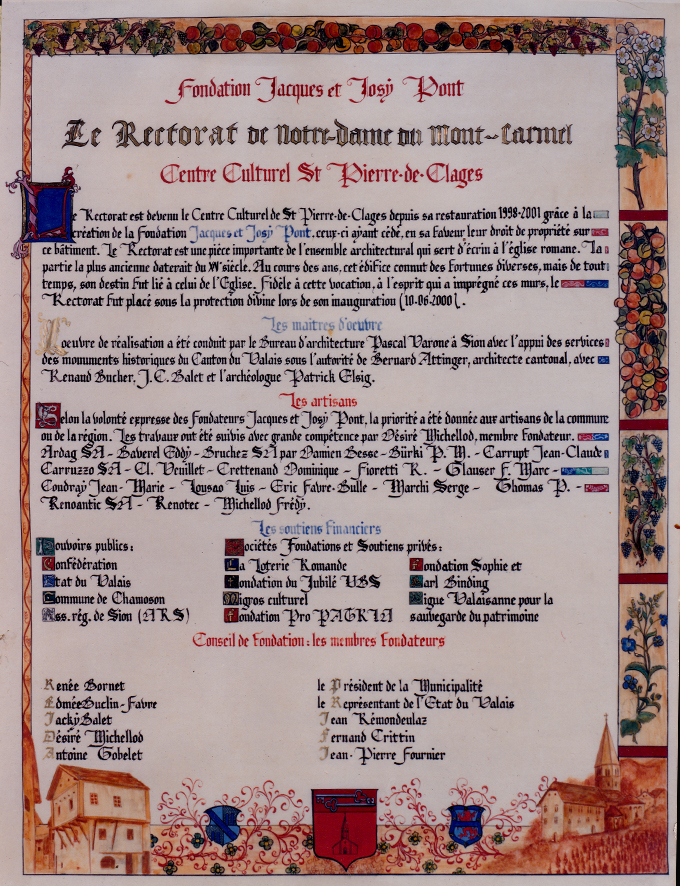 Fondation Jacques et Josÿ Pont
Le Rectorat de Notre-Dame du Mont-Carmel
Centre Culturel St Pierre-de-Clages
Le Rectorat est devenu le Centre Culturel de St Pierre-de-Clages depuis sa restauration 1998-2001 grâce à la
création de la Fondation Jacques et Josÿ Pont, ceux-ci ayant cédé, en sa faveur leur droit de propriété sur
ce bâtiment. Le Rectorat est une pièce importante de l'ensemble architectural qui sert d'écrin à l'église romane. La
partie la plus ancienne daterait du XVe siècle. Au cours des ans, cet édifice connut des fortunes diverses, mais de tout
temps, son destin fut lié à celui de l'Eglise. Fidèle à cette vocation, à l'esprit qui a imprégné ces murs, le
Rectorat fut placé sous la protection divine lors de son inauguration (10-06-2000).
Les maîtres d'oeuvre
L'oeuvre de réalisation a été conduit par le Bureau d'architecture Pascal Varone à Sion avec l'appui des services
des monuments historiques du Canton du Valais sous l'autorité de Bernard Attinger, architecte cantonal, avec
Renaud Bucher, J.C. Balet et l'archéologue Patrick Elsig.
Les artisans
Selon la volonté expresse des fondateurs Jacques et Josÿ Pont, la priorité a été donnée aux artisans de la commune
ou de la région. Les travaux ont été suivis avec grande compétence par Désiré Michellod, membre fondateur.
Ardag SA - Baverel Eddy - Bruchez SA par Damien Besse - Bürki P. M. - Carrupt Jean-Claude
Carruzzo SA - Cl. Veuillet - Crettenand Dominique - Fioretti R. - Glauser F. Marc -
Coudray Jean-Marie - Lousao Luis - Eric Favre-Bulle - Marchi Serge - Thomas P. -
Renoantic SA - Renotec - Michellod Frédy.
Les soutiens financiers
Pouvoirs publics: Sociétés Fondations et Soutiens privés:
Confédération La Loterie Romande Fondation Sophie et
Etat du Valais Fondation du Jubilé UBS Carl Binding
Commune de Chamoson Migros culturel Ligue Valaisanne pour la
Ass. rég. de Sion (ARS) Fondation Pro PATRIA sauvegarde du patrimoine
Conseil de Fondation: les membres fondateurs
Renée Bornet le Président de la Municipalité
Edmée Buclin-Favre le Représentant de l'Etat du Valais
Jacky Balet Jean Rémondeulaz
Désiré Michellod Fernand Crittin
Antoine Gobelet Jean-Pierre Fournier